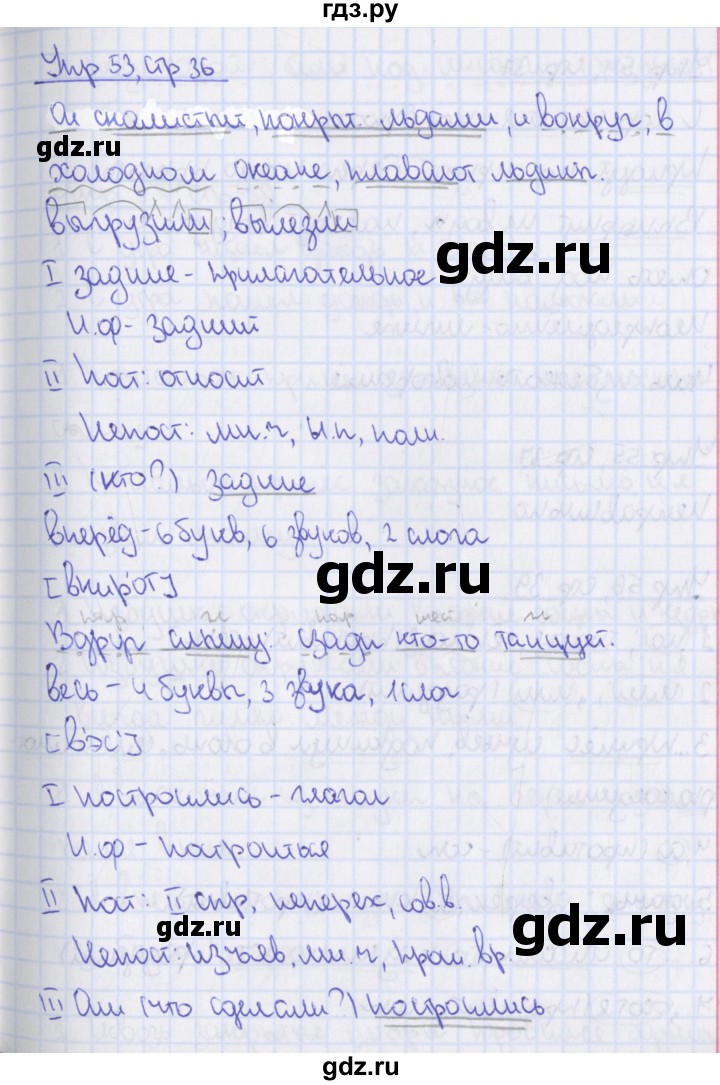 гдз.ру
Упр 53, стр 36
Он скалистый, покрыт льдами, и вокруг, в
gdz.ru
холодном океане, плавают льдины.
выгрузили; вылезли
gdz.ru
I задние - прилагательное
И.ф - задний
II Пост: относит
Непост: мн.ч, И.п, полн.
III (кто?) задние
вперёд - 6 букв, 6 звуков, 2 слога
gdz.ru
[вп'ир'от]
нар гл нар мест гл
Вдруг слышу: сзади кто-то танцует.
gdz.ru
весь - 4 буквы, 3 звука, 1 слог
[в'эс']
I построились - глагол
И.ф - построиться
II Пост: II спр, неперех, сов.в.
gdz.ru
Непост: изъяв, мн.ч, прош.вр.
gdz.ru
III Они (что сделали?) построились
gdz.ru